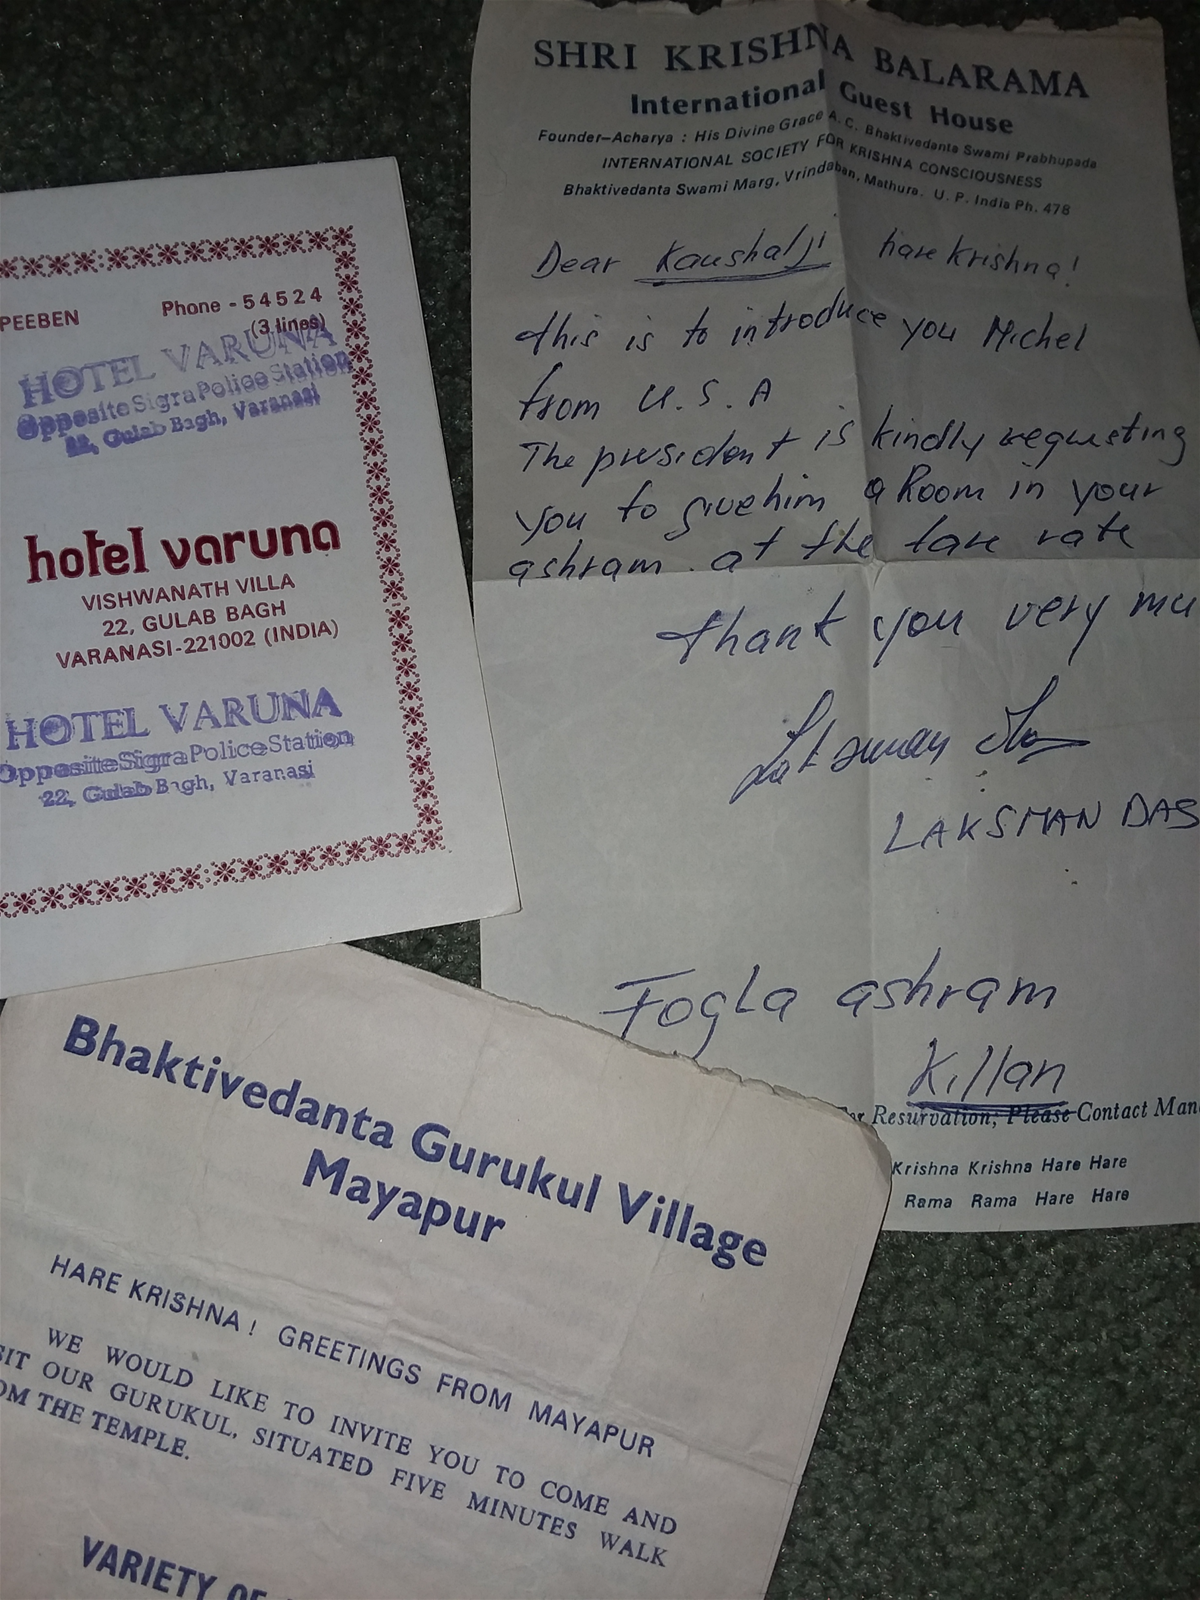 SHRI KRISHNA BALARAMA
International Guest House
Founder-Acharya : His Divine Grace A. C. Bhaktivedanta Swami Prabhupada
INTERNATIONAL SOCIETY FOR KRISHNA CONSCIOUSNESS
Bhaktivedanta Swami Marg, Vrindaban, Mathura. U. P. India Ph. 478
Dear Kaushalji hare krishna!
this is to introduce you Michel
from U.S.A
The president is kindly requesting
you to give him a Room in your
ashram at the rate
thank you very mu
LAKSMAN DAS
Fogla ashram
Killan
For Resurvation; Please Contact Man
Krishna Krishna Hare Hare
Rama Rama Hare Hare
PEEBEN Phone - 54524
(3 lines)
HOTEL VARUNA
Opposite Sigra Police Station
22, Gulab Bagh, Varanasi
hotel varuna
VISHWANATH VILLA
22, GULAB BAGH
VARANASI-221002 (INDIA)
HOTEL VARUNA
Opposite Sigra Police Station
22, Gulab Bagh, Varanasi
Bhaktivedanta Gurukul Village
Mayapur
HARE KRISHNA! GREETINGS FROM MAYAPUR
WE WOULD LIKE TO INVITE YOU TO COME AND
SIT OUR GURUKUL, SITUATED FIVE MINUTES WALK
OM THE TEMPLE.
VARIETY OF